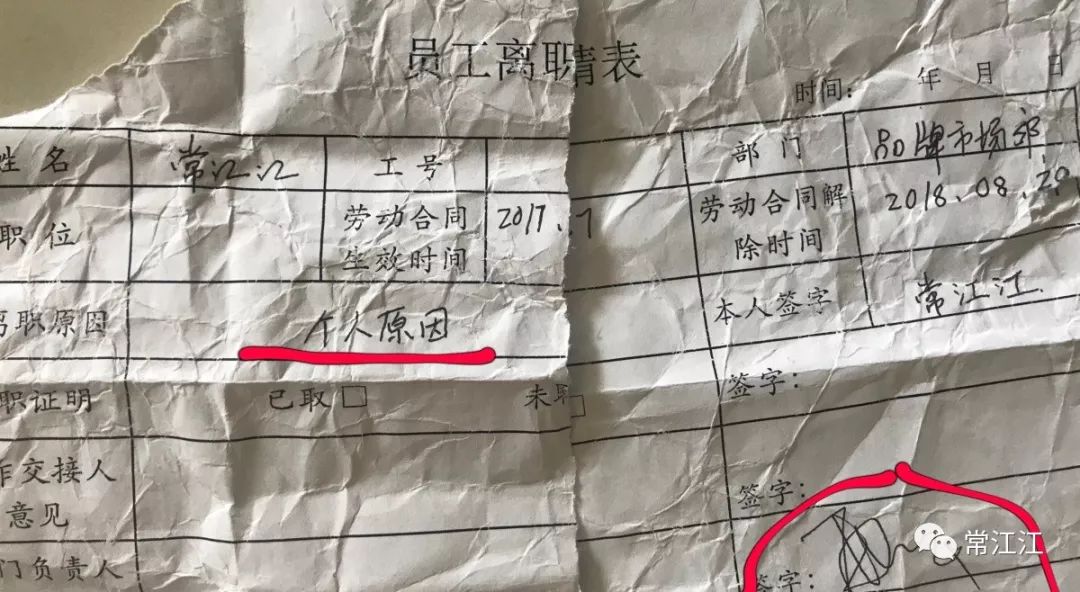 员工离职申请表
时间： 年 月 日
姓 名 常江江 工号 部 门 品牌市场部
职 位 劳动合同生效时间 2017.7 劳动合同解除时间 2018.08.20
离职原因 个人原因 本人签字 常江江
职证明 已取□ 未取□ 签字：
作交接人意见 签字：
门负责人 签字：
常江江